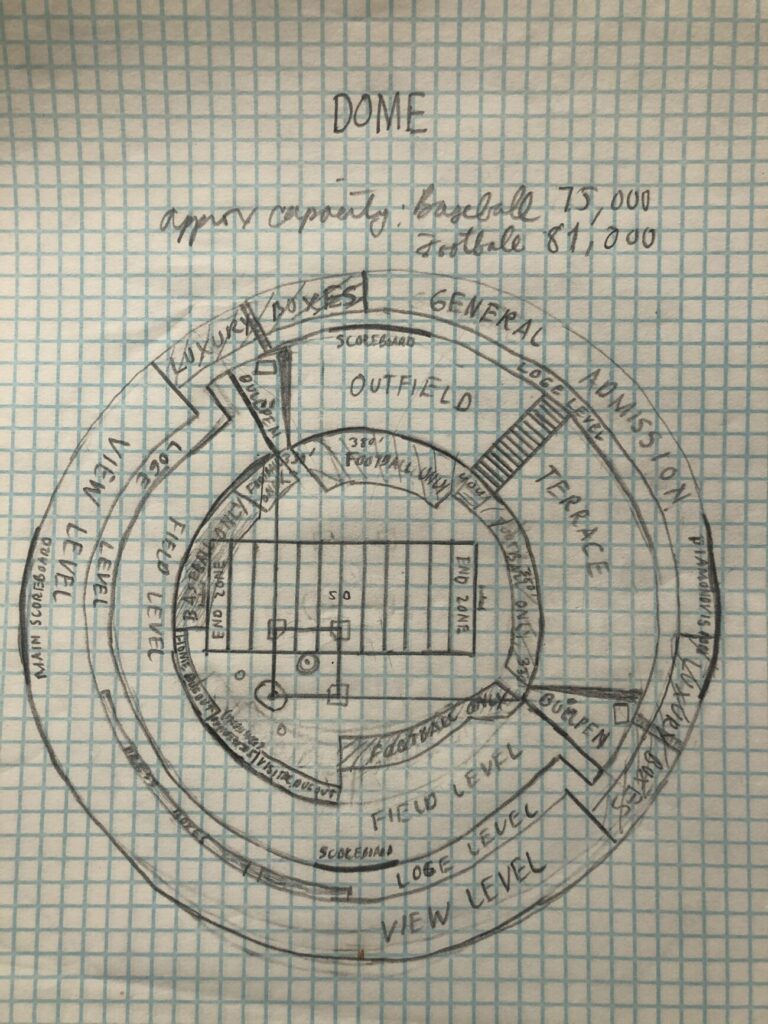 DOME
approx capacity: Baseball 75,000
Football 81,000
LUXURY BOXES
GENERAL ADMISSION
SCOREBOARD
OUTFIELD
LOGE LEVEL
BULLPEN
380'
FOOTBALL ONLY
TERRACE
VIEW LEVEL
LOGE LEVEL
FIELD LEVEL
BASEBALL ONLY
FOOTBALL ONLY
MAIN SCOREBOARD
DIAMONDVISION
END ZONE
50
END ZONE
HOME DUGOUT
VISITOR DUGOUT
FOOTBALL ONLY
BULLPEN
LUXURY BOXES
PRESS BOXES
FIELD LEVEL
SCOREBOARD
LOGE LEVEL
VIEW LEVEL